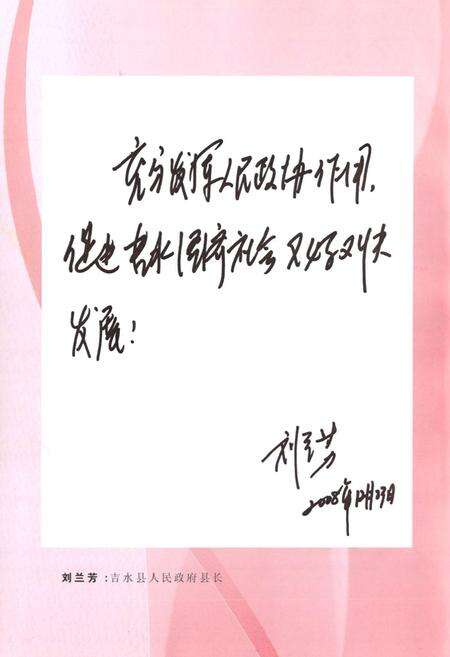 充分发挥人民政协作用，
促进吉水经济社会又好又快
发展！
刘兰芳
2008年12月23日
刘兰芳：吉水县人民政府县长